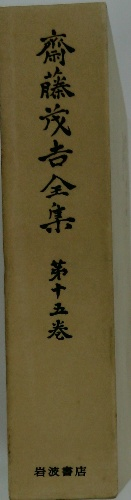 齋藤茂吉全集
第十五巻
岩波書店